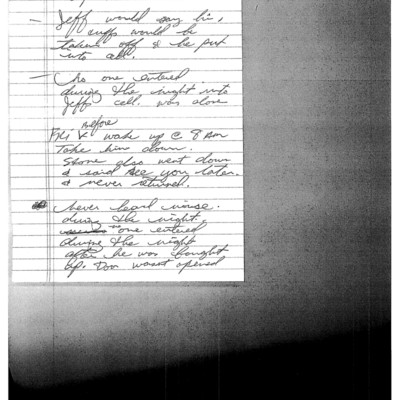 — Jeff would say hi,
cuffs would be
taken off & be put
into cell.
— No one entered
during the night into
Jeff's cell. was alone
before
Fri K wake up @ 8 am
Take him down.
Stone also went down
& said see you later.
& never returned.
Never heard noise.
during the night.
no one entered
during the night
after he was brought
up. Door wasnt opened